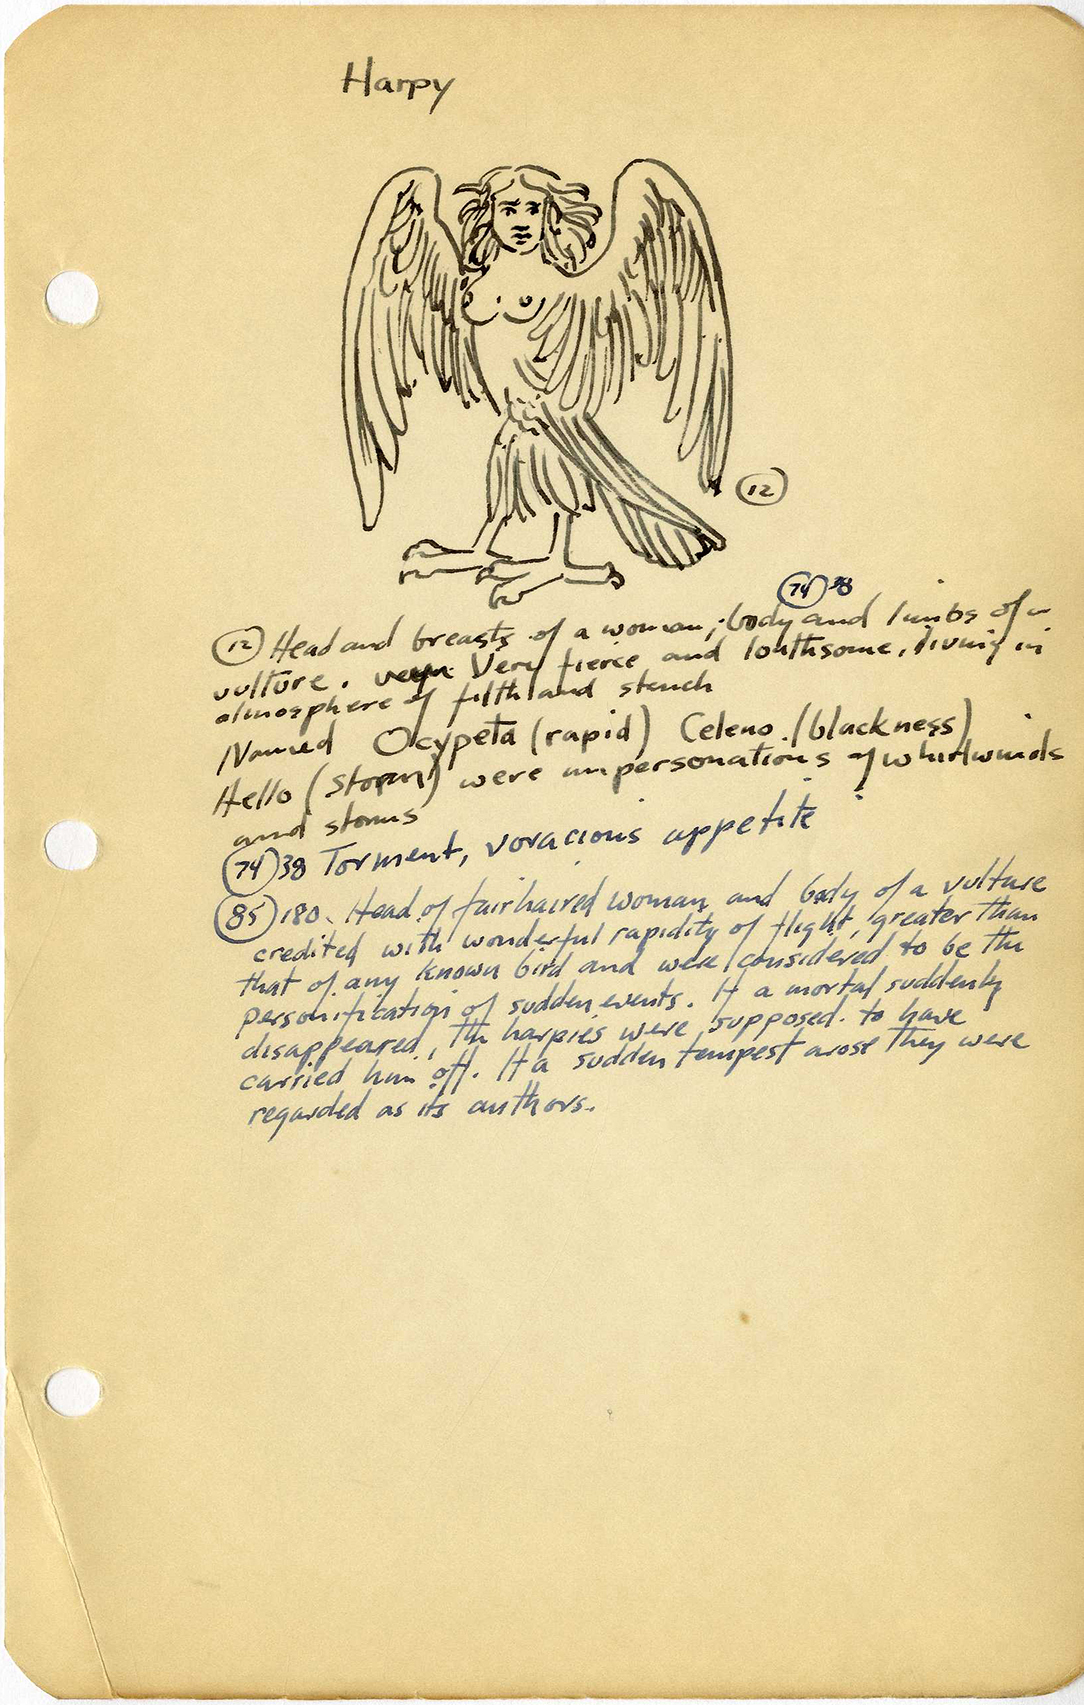 Harpy
(12)
(74) 38
(12) Head and breasts of a woman; body and limbs of a
vulture. Very fierce and loathsome, living in
atmosphere of filth and stench
Named Ocypeta (rapid) Celeno. (blackness)
Hello (storm) were impersonations of whirlwinds
and storms
(74) 38 Torment, voracious appetite
(85) 180. Head of fairhaired woman and body of a vulture
credited with wonderful rapidity of flight, greater than
that of any known bird and were considered to be the
personification of sudden events. If a mortal suddenly
disappeared, the harpies were supposed to have
carried him off. If a sudden tempest arose they were
regarded as its authors.